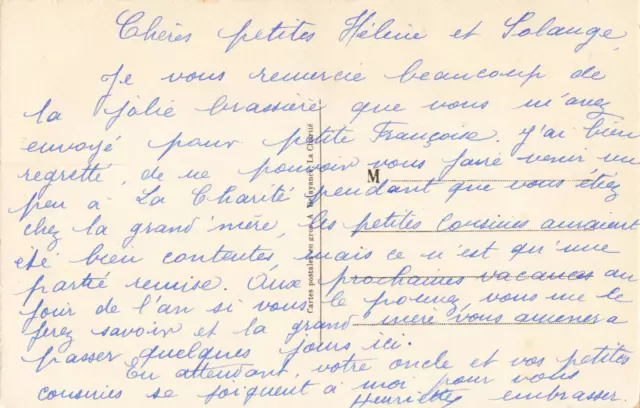 Chères petites Hélène et Solange,
Je vous remercie beaucoup de
la jolie brassière que vous m'avez
envoyé pour petite Françoise. j'ai bien
regretté, de ne pouvoir vous faire venir un
peu à La Charité pendant que vous étiez
chez la grand'mère, les petites cousines auraient
été bien contentes, mais ce n'est qu'une
partie remise. Aux prochaines vacances au
jour de l'an si vous le pouvez vous me le
ferez savoir et la grand mère vous amènera
passer quelques jours ici.
En attendant, votre oncle et vos petites
cousines se joignent à moi pour vous
embrasser.
Henriette
M
Cartes postales en gros, La Charité